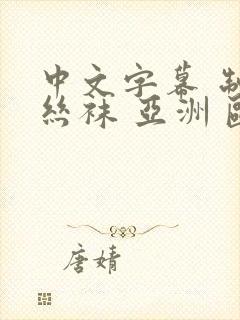 中文字幕 制
丝袜 亚洲
唐婧